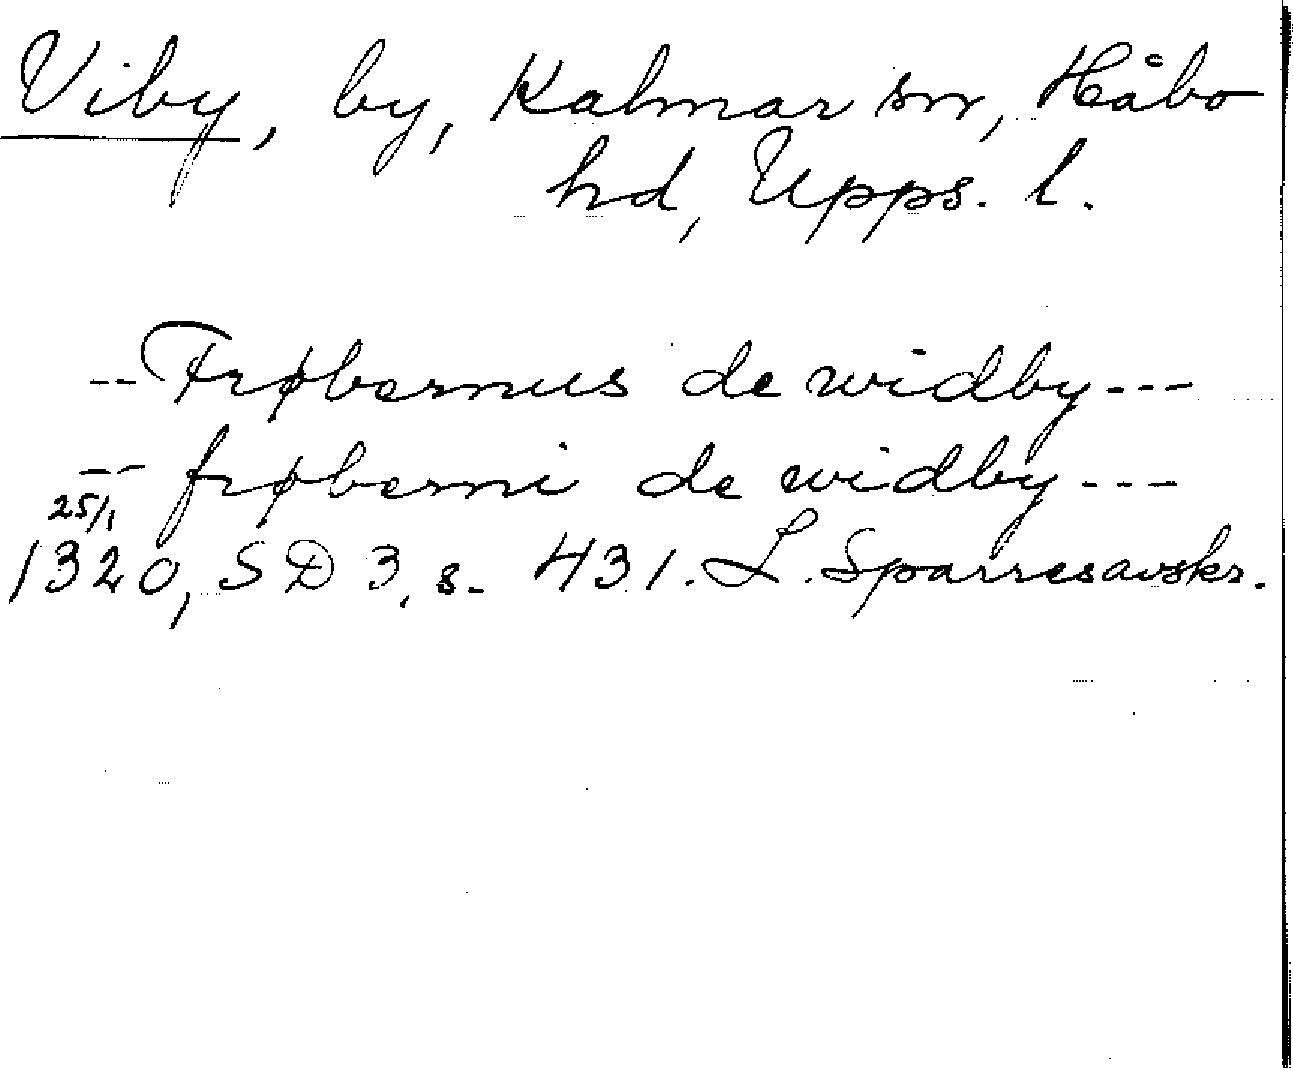 Viby, by, Kalmar sn, Håbo
hd, Upps. l.
-- Frøbernus de widby ---
-- frøberni de widby ---
25/1
1320, SD 3, s. 431. L. Sparres avskr.